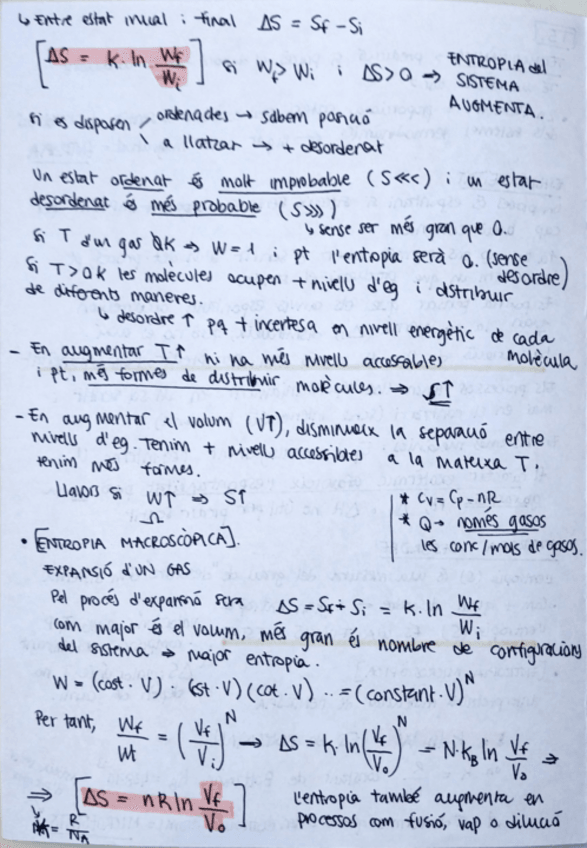 ↳ Entre estat inicial i final ΔS = Sf - Si
[ΔS = K · ln Wf/Wi] si Wf > Wi i ΔS > 0 → ENTROPIA del SISTEMA AUGMENTA.
Si es disposen ordenades → sabem posició
a llatzar → + desordenat
Un estat ordenat és molt improbable (S<<<) i un estat
desordenat és més probable (S>>>)
↳ sense ser més gran que 0.
Si T d'un gas 0K → W = 1 i pt l'entopia serà 0. (sense desordre)
Si T > 0K les molecules ocupen + nivells d'eg i distribuir
de diferents maneres.
↳ desordre ↑ pq + incertesa en nivell energètic de cada molècula
- En augmentar T↑ hi ha més nivells accessibles
i pt, més formes de distribuir molècules. ⇒ S↑
- En augmentar el volum (V↑), disminueix la separació entre
nivells d'eg. Tenim + nivells accessibles a la mateixa T.
tenim més formes.
Llavors si W↑ ⇒ S↑
Ω
* Cv = Cp - nR
* Q → només gasos
les conc / mols de gasos.
• [ENTROPIA MACROSCÒPICA].
EXPANSIÓ D'UN GAS
Pel procés d'expansió serà ΔS = Sf + Si = K · ln Wf/Wi
com major és el volum més gran és nombre de configuracions
del sistema → major entropia.
W = (cost · V) (cst · V) (cot · V) ... = (constant · V)^N
Per tant, Wf/Wt = (Vf/Vi)^N → ΔS = K · ln(Vf/V0)^N = N · kB ln Vf/V0 ⇒
⇒ [ΔS = nR ln Vf/V0] l'entropia també augmenta en
= R/NA processos com fusió, vap o dilució